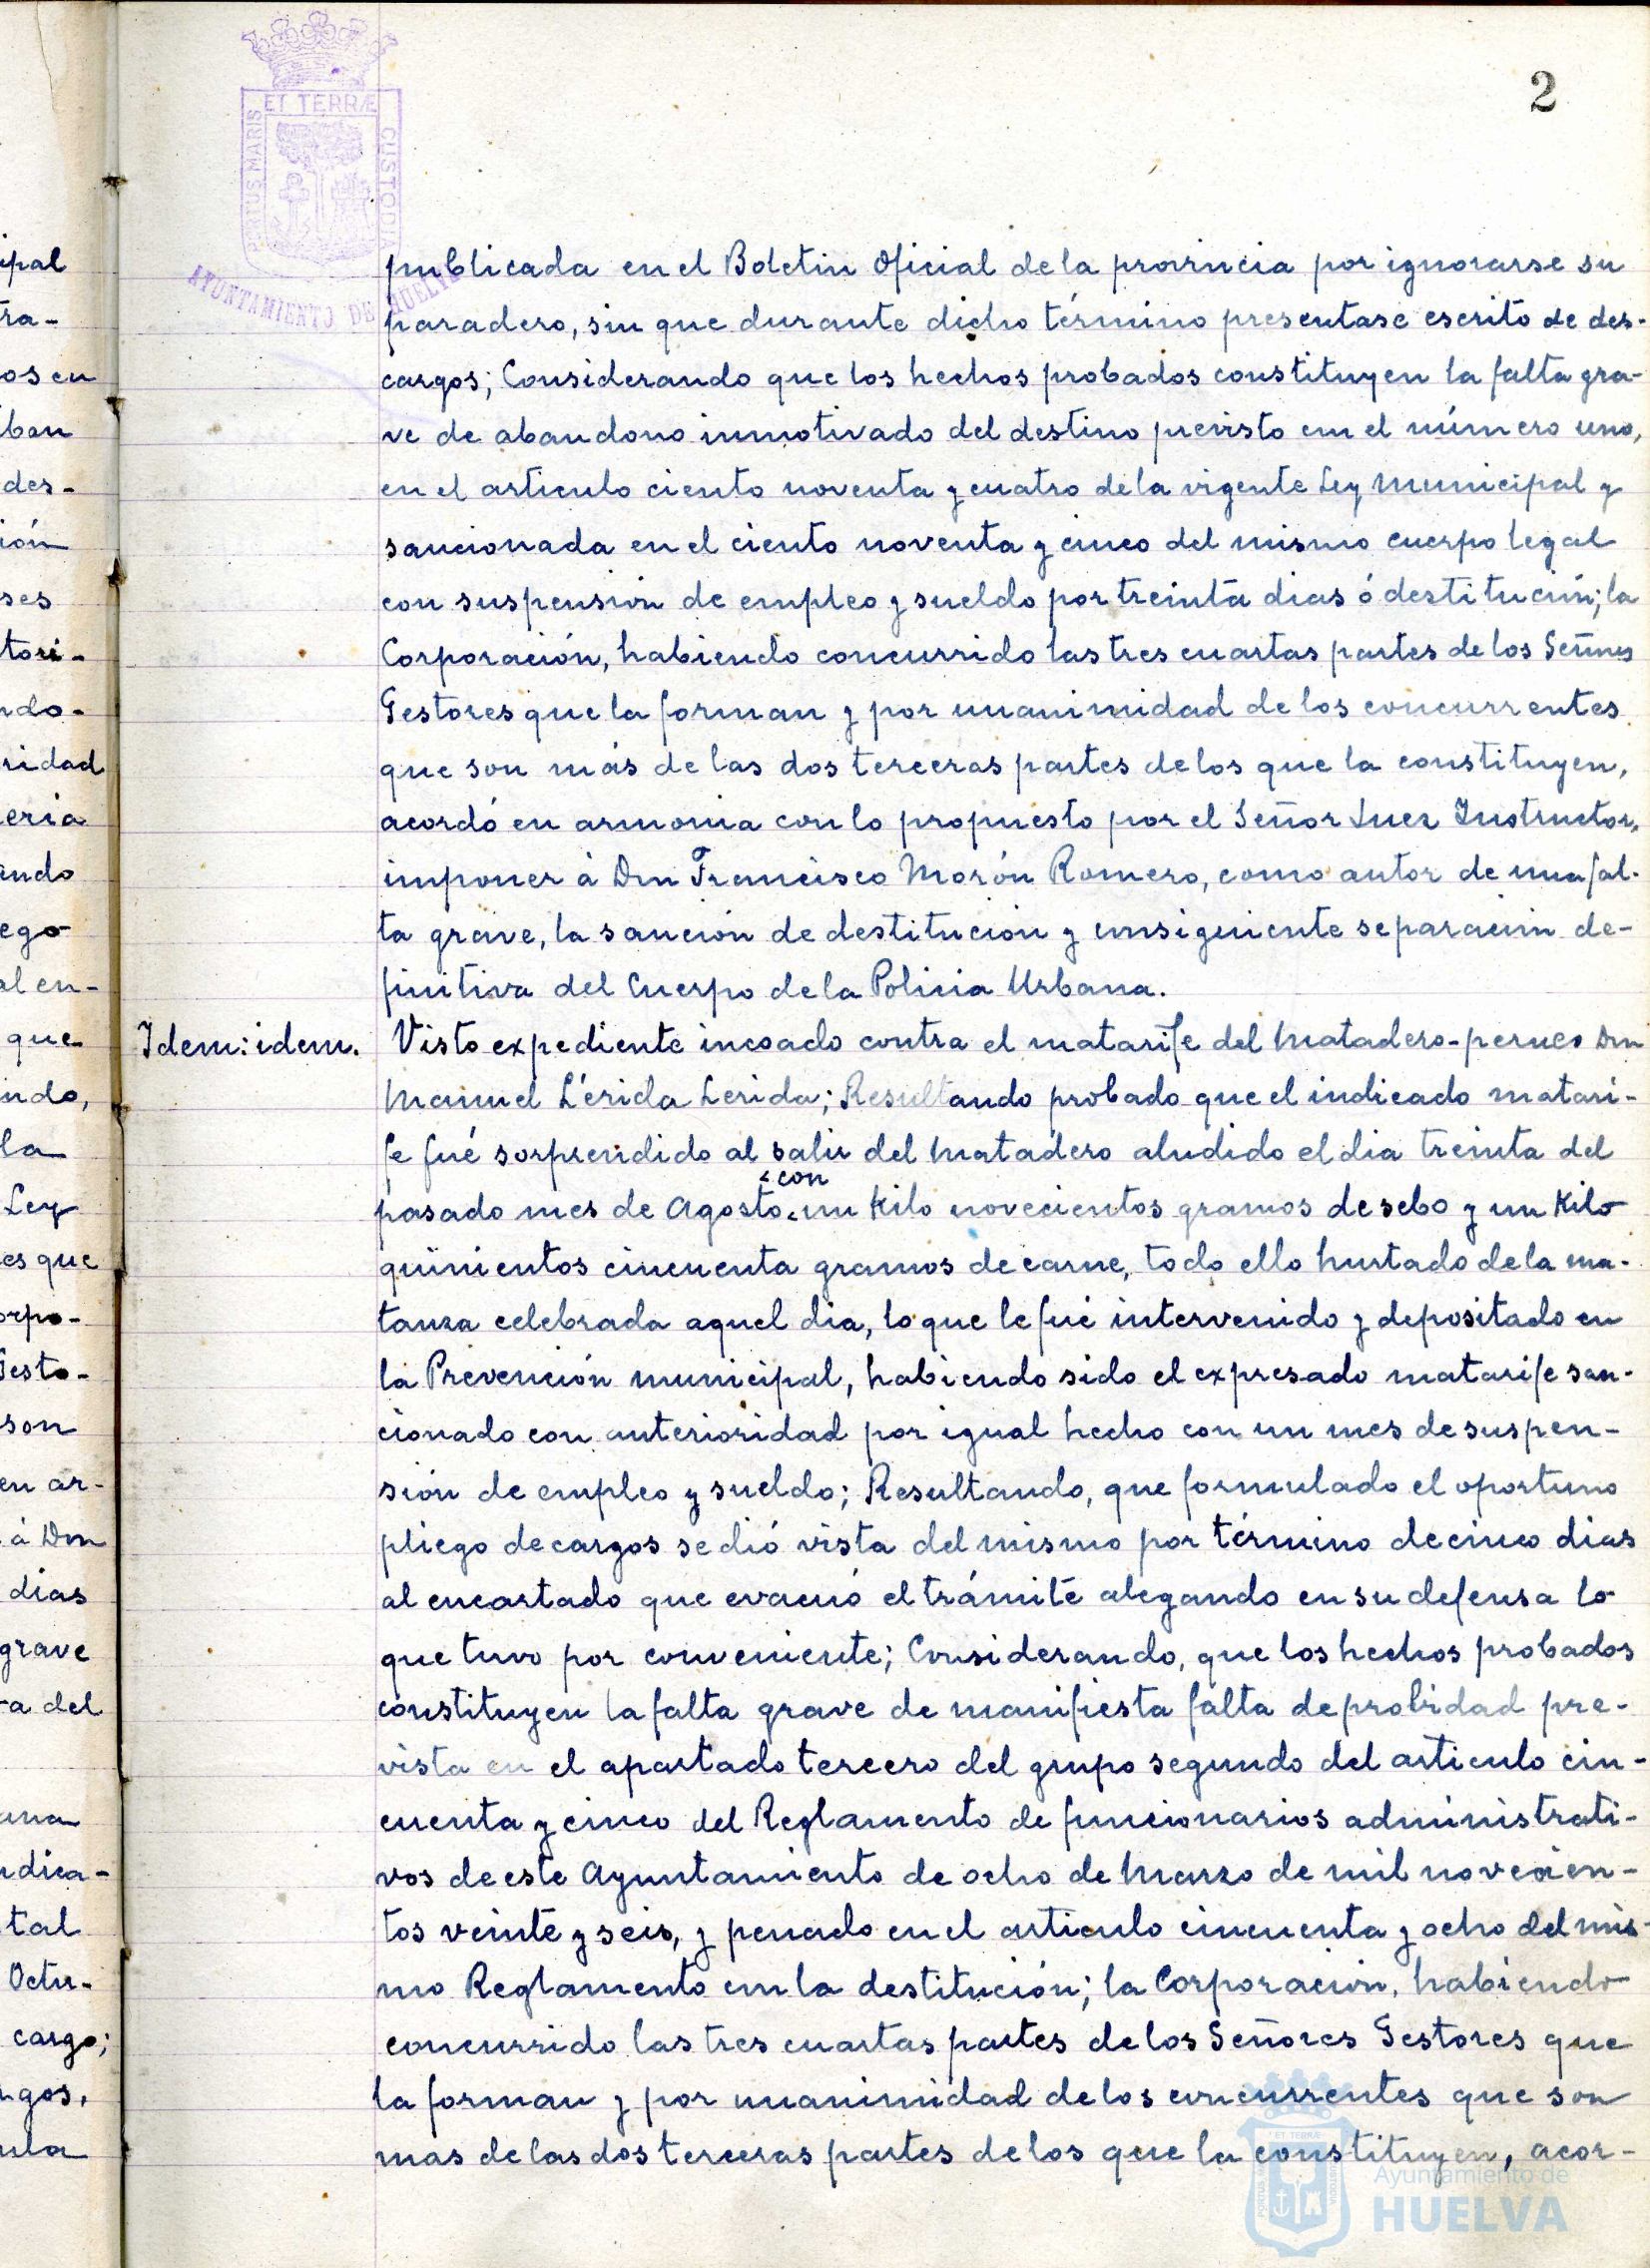 2
ET TERRÆ
PORTUS MARIS
CUSTODIA
AYUNTAMIENTO DE HUELVA
publicada en el Boletin Oficial de la provincia por ignorarse su
paradero, sin que durante dicho término presentase escrito de des-
cargos; Considerando que los hechos probados constituyen la falta gra-
ve de abandono inmotivado del destino previsto en el número uno,
en el articulo ciento noventa y cuatro de la vigente Ley Municipal y
sancionada en el ciento noventa y cinco del mismo cuerpo legal
con suspensión de empleo y sueldo por treinta dias ó destitución; la
Corporación, habiendo concurrido las tres cuartas partes de los Señores
Gestores que la forman y por unanimidad de los concurrentes
que son más de las dos terceras partes de los que la constituyen,
acordó en armonia con lo propuesto por el Señor Juez Instructor,
imponer à Don Francisco Morón Romero, como autor de una fal-
ta grave, la sanción de destitución y consiguiente separación de-
finitiva del Cuerpo de la Policia Urbana.
Idem: idem. Visto expediente incoado contra el matarife del Matadero-perneo Don
Manuel Lérida Lerida; Resultando probado que el indicado matari-
fe fué sorprendido al salir del Matadero aludido el dia treinta del
con
pasado mes de Agosto un Kilo novecientos gramos de sebo y un Kilo
quinientos cincuenta gramos de carne, todo ello hurtado de la ma-
tanza celebrada aquel dia, lo que le fué intervenido y depositado en
la Prevención municipal, habiendo sido el expresado matarife san-
cionado con anterioridad por igual hecho con un mes de suspen-
sión de empleo y sueldo; Resultando, que formulado el oportuno
pliego de cargos se dió vista del mismo por término de cinco dias
al encartado que evacuó el trámite alegando en su defensa lo
que tuvo por conveniente; Considerando, que los hechos probados
constituyen la falta grave de manifiesta falta de probidad pre-
vista en el apartado tercero del grupo segundo del articulo cin-
cuenta y cinco del Reglamento de funcionarios administrati-
vos de este Ayuntamiento de ocho de Marzo de mil novecien-
tos veinte y seis, y penado en el articulo cincuenta y ocho del mis-
mo Reglamento con la destitución; la Corporación, habiendo
concurrido las tres cuartas partes de los Señores Gestores que
la forman y por unanimidad de los concurrentes que son
mas de las dos terceras partes de los que la constituyen, acor-
Ayuntamiento de
HUELVA